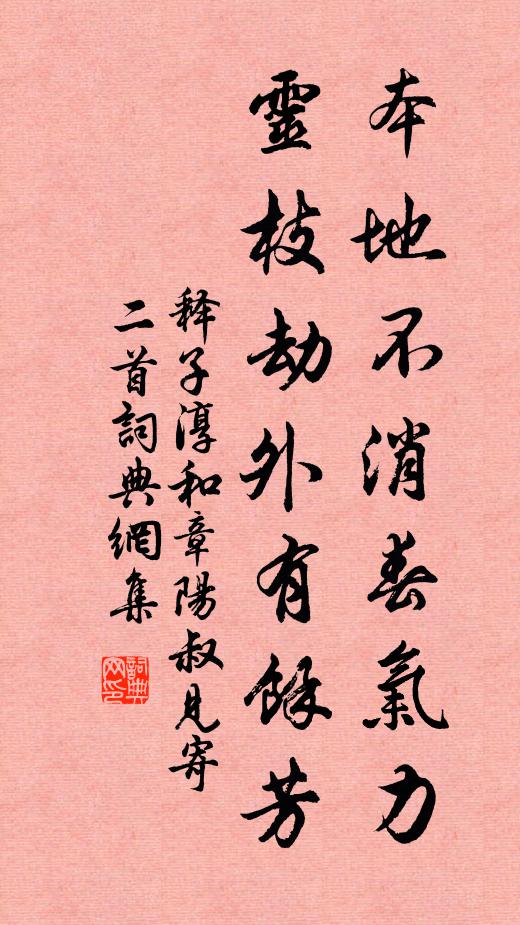 本地不消春氣力
靈枝劫外有餘芳
释子淳和章陽叔見寄
二首詞典網集
詞典
网印